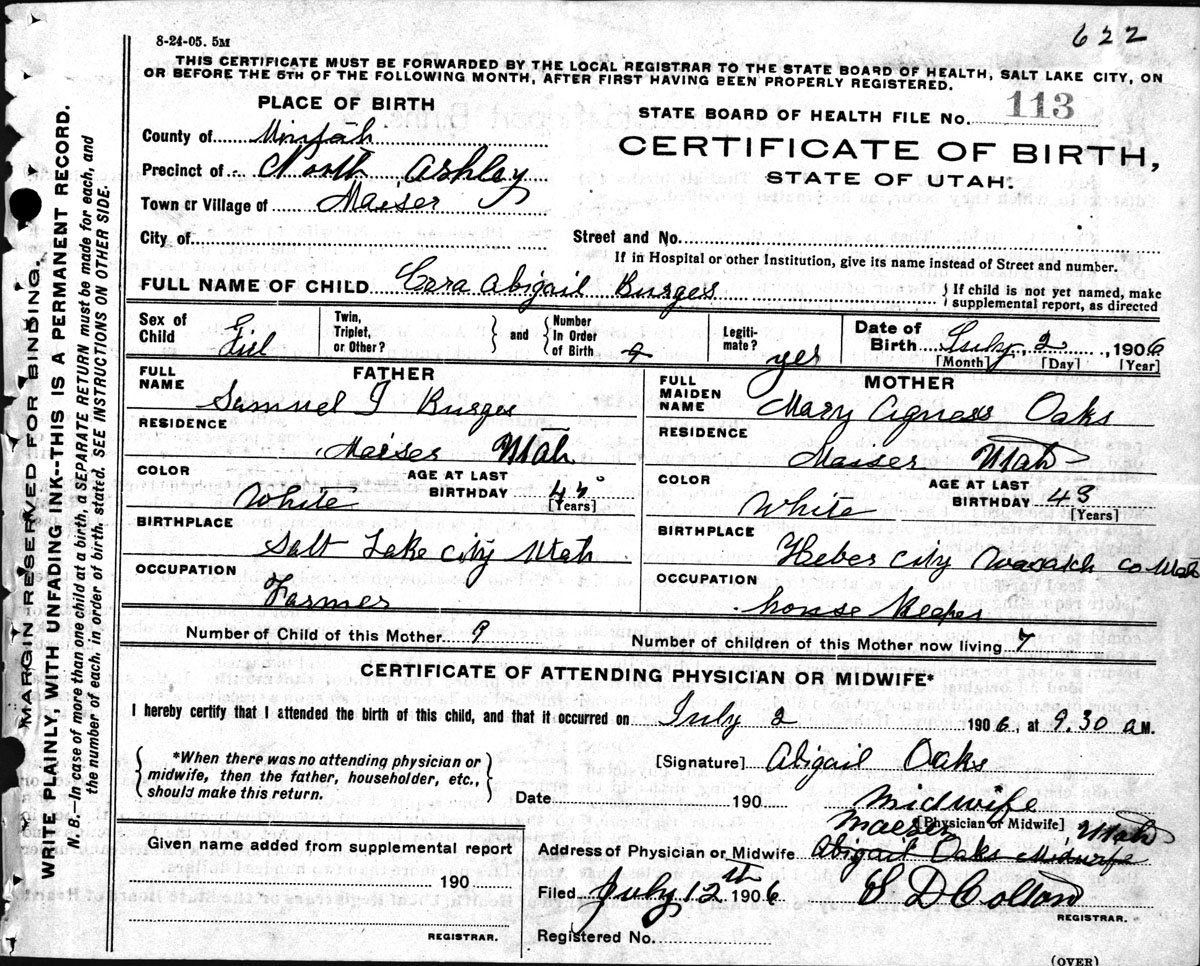 622
8-24-05. 5M
THIS CERTIFICATE MUST BE FORWARDED BY THE LOCAL REGISTRAR TO THE STATE BOARD OF HEALTH, SALT LAKE CITY, ON
OR BEFORE THE 5TH OF THE FOLLOWING MONTH, AFTER FIRST HAVING BEEN PROPERLY REGISTERED.
PLACE OF BIRTH
STATE BOARD OF HEALTH FILE No. 113
County of
CERTIFICATE OF BIRTH,
STATE OF UTAH.
Precinct of North Ashley
Town or Village of Maeser
City of
Street and No.
If in Hospital or other Institution, give its name instead of Street and number.
FULL NAME OF CHILD Cora Abigail Burges
If child is not yet named, make
supplemental report, as directed
Sex of
Child
Twin,
Triplet,
or Other?
and
Number
In Order
of Birth 9
Legiti-
mate? yes
Date of
Birth July 2, 1906
[Month] [Day] [Year]
FATHER
FULL
NAME
Samuel Burges
RESIDENCE
Maeser Utah
COLOR
White
AGE AT LAST
BIRTHDAY
[Years]
BIRTHPLACE
Salt Lake City Utah
OCCUPATION
Farmer
MOTHER
FULL
MAIDEN
NAME
Mary Agness Oaks
RESIDENCE
Maeser Utah
COLOR
White
AGE AT LAST
BIRTHDAY 43
[Years]
BIRTHPLACE
Heber City Wasatch co Utah
OCCUPATION
house Keeper
Number of Child of this Mother 9
Number of children of this Mother now living 7
CERTIFICATE OF ATTENDING PHYSICIAN OR MIDWIFE*
I hereby certify that I attended the birth of this child, and that it occurred on July 2 1906, at 9.30 a M.
*When there was no attending physician or
midwife, then the father, householder, etc.,
should make this return.
[Signature] Abigail Oaks
Date 190 Midwife
[Physician or Midwife]
Maeser Utah
Address of Physician or Midwife Abigail Oaks Midwife
Given name added from supplemental report
190
REGISTRAR.
Filed July 12th 1906 S D Colton
REGISTRAR.
Registered No.
(OVER)
MARGIN RESERVED FOR BINDING.
WRITE PLAINLY, WITH UNFADING INK--THIS IS A PERMANENT RECORD.
N. B.—In case of more than one child at a birth, a SEPARATE RETURN must be made for each, and
the number of each, in order of birth, stated. SEE INSTRUCTIONS ON OTHER SIDE.